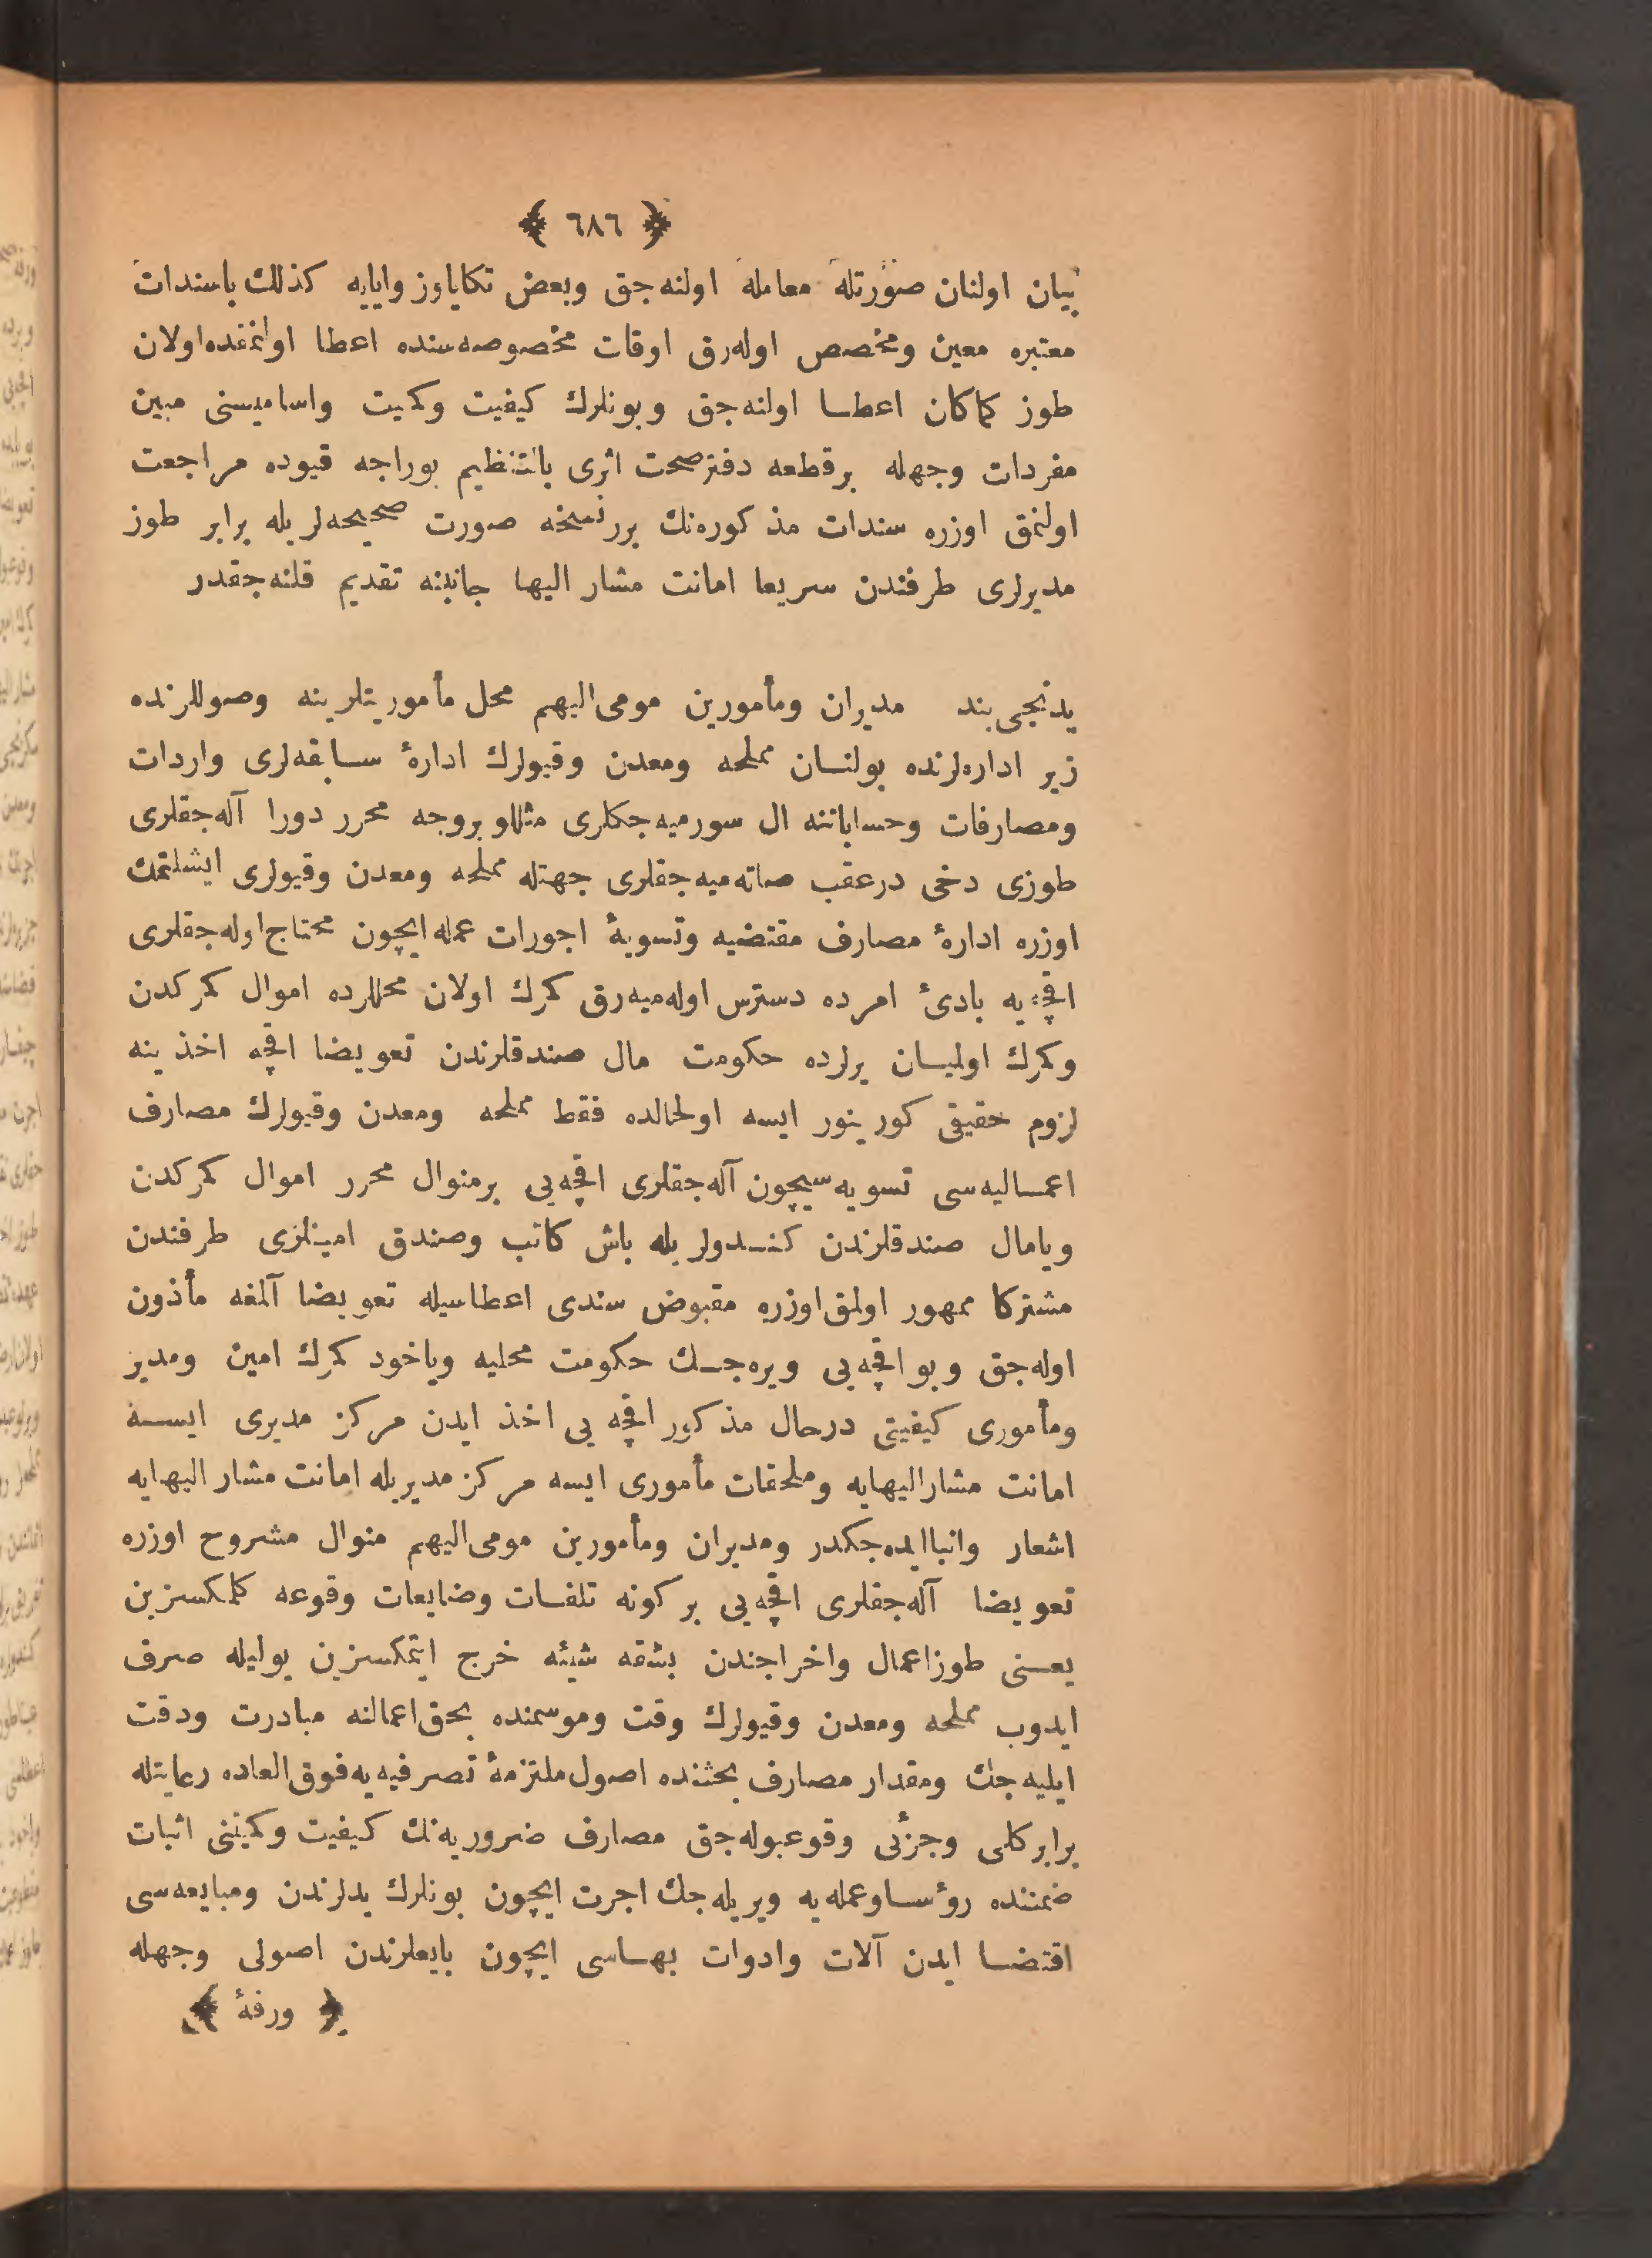 ﴿ ٦٨٦ ﴾
بيان اولنان صورتله معامله اولنه‌جق وبعض تكاياوز وايايه كذلك باسندات
معتبره معين ومخصص اوله‌رق اوقات مخصوصه‌سنده اعطا اولنمقده‌اولان
طوز كماكان اعطا اولنه‌جق وبونلرك كيفيت وكميت واساميسنى مبين
مفردات وجهله برقطعه دفترصحت اثرى بالتنظيم بوراجه قيوده مراجعت
اولنمق اوزره سندات مذكوره‌نك برر نسخه صورت صحيحه‌لريله برابر طوز
مديرلرى طرفندن سريعا امانت مشار اليها جانبنه تقديم قلنه‌جقدر
يدنجى بند مديران ومأمورين مومى‌اليهم محل مأموريتلرينه وصوللرنده
زير اداره‌لرنده بولنان مملحه ومعدن وقيولرك ادارۀ سابقه‌لرى واردات
ومصارفات وحساباتنه ال سورميه‌جكلرى مثللو بروجه محرر دورا آله‌جقلرى
طوزى دخى درعقب صاته‌ميه‌جقلرى جهتله مملحه ومعدن وقيولرى ايشلتمك
اوزره ادارۀ مصارف مقتضيه وتسويۀ اجورات عمله ايچون محتاج اوله‌جقلرى
اقچه‌يه بادئ امرده دسترس اوله‌ميه‌رق كمرك اولان محللرده اموال كمركدن
وكمرك اولميان يرلرده حكومت مال صندقلرندن تعويضا اقچه اخذينه
لزوم حقيقى كورينور ايسه اولحالده فقط مملحه ومعدن وقيولرك مصارف
اعماليه‌سى تسويه‌سيچون آله‌جقلرى اقچه‌يى برمنوال محرر اموال كمركدن
ويامال صندقلرندن كندولريله باش كاتب وصندق امينلرى طرفندن
مشتركا ممهور اولمق اوزره مقبوض سندى اعطاسيله تعويضا آلمغه مأذون
اوله‌جق وبو اقچه‌يى ويره‌جك حكومت محليه وياخود كمرك امين ومدير
ومأمورى كيفيتى درحال مذكور اقچه‌يى اخذ ايدن مركز مديرى ايسه
امانت مشاراليهايه وملحقات مأمورى ايسه مركز مديريله امانت مشار اليهايه
اشعار وانبا ايده‌جكدر ومديران ومأمورين مومى‌اليهم منوال مشروح اوزره
تعويضا آله‌جقلرى اقچه‌يى بر كونه تلفات وضايعات وقوعه كلمكسزين
يعنى طوزاعمال واخراجندن بشقه شيئه خرج ايتمكسزين يوليله صرف
ايدوب مملحه ومعدن وقيولرك وقت وموسمنده بحق‌اعمالنه مبادرت ودقت
ايليه‌جك ومقدار مصارف بحثنده اصول ملتزمۀ تصرفيه‌يه فوق‌العاده رعايتله
برابر كلى وجزئى وقوعبوله‌جق مصارف ضروريه‌نك كيفيت وكميتنى اثبات
ضمننده رؤسا وعمله‌يه ويريله‌جك اجرت ايچون بونلرك يدلرندن ومبايعه‌سى
اقتضا ايدن آلات وادوات بهاسى ايچون بايعلرندن اصولى وجهله
﴿ ورقۀ ﴾